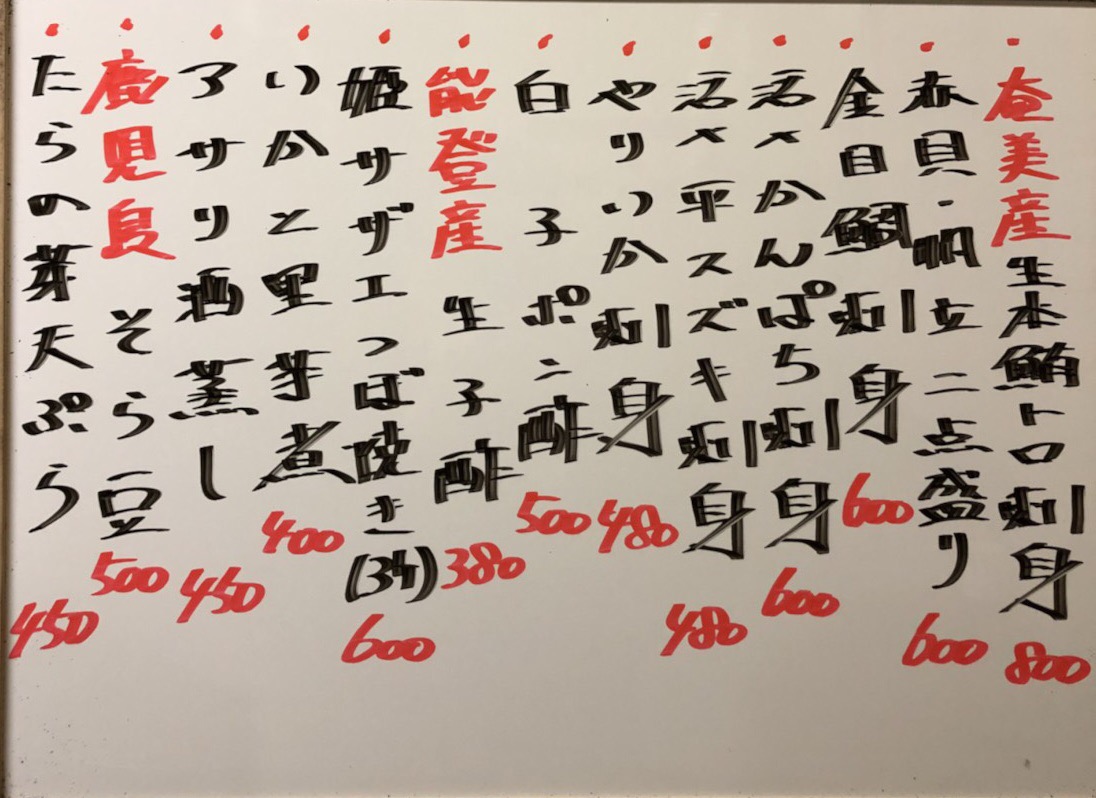 ・奄美産生本鮪トロ刺身 800
・赤貝・帆立二点盛り 600
・金目鯛刺身 600
・活〆かんぱち刺身 600
・活〆平スズキ刺身 480
・やりいか刺身 480
・白子ポン酢 500
・能登産生子酢 380
・姫サザエつぼ焼き(3ケ) 600
・いかと里芋煮 400
・アサリ酒蒸し 450
・鹿児島そら豆 500
・たらの芽天ぷら 450